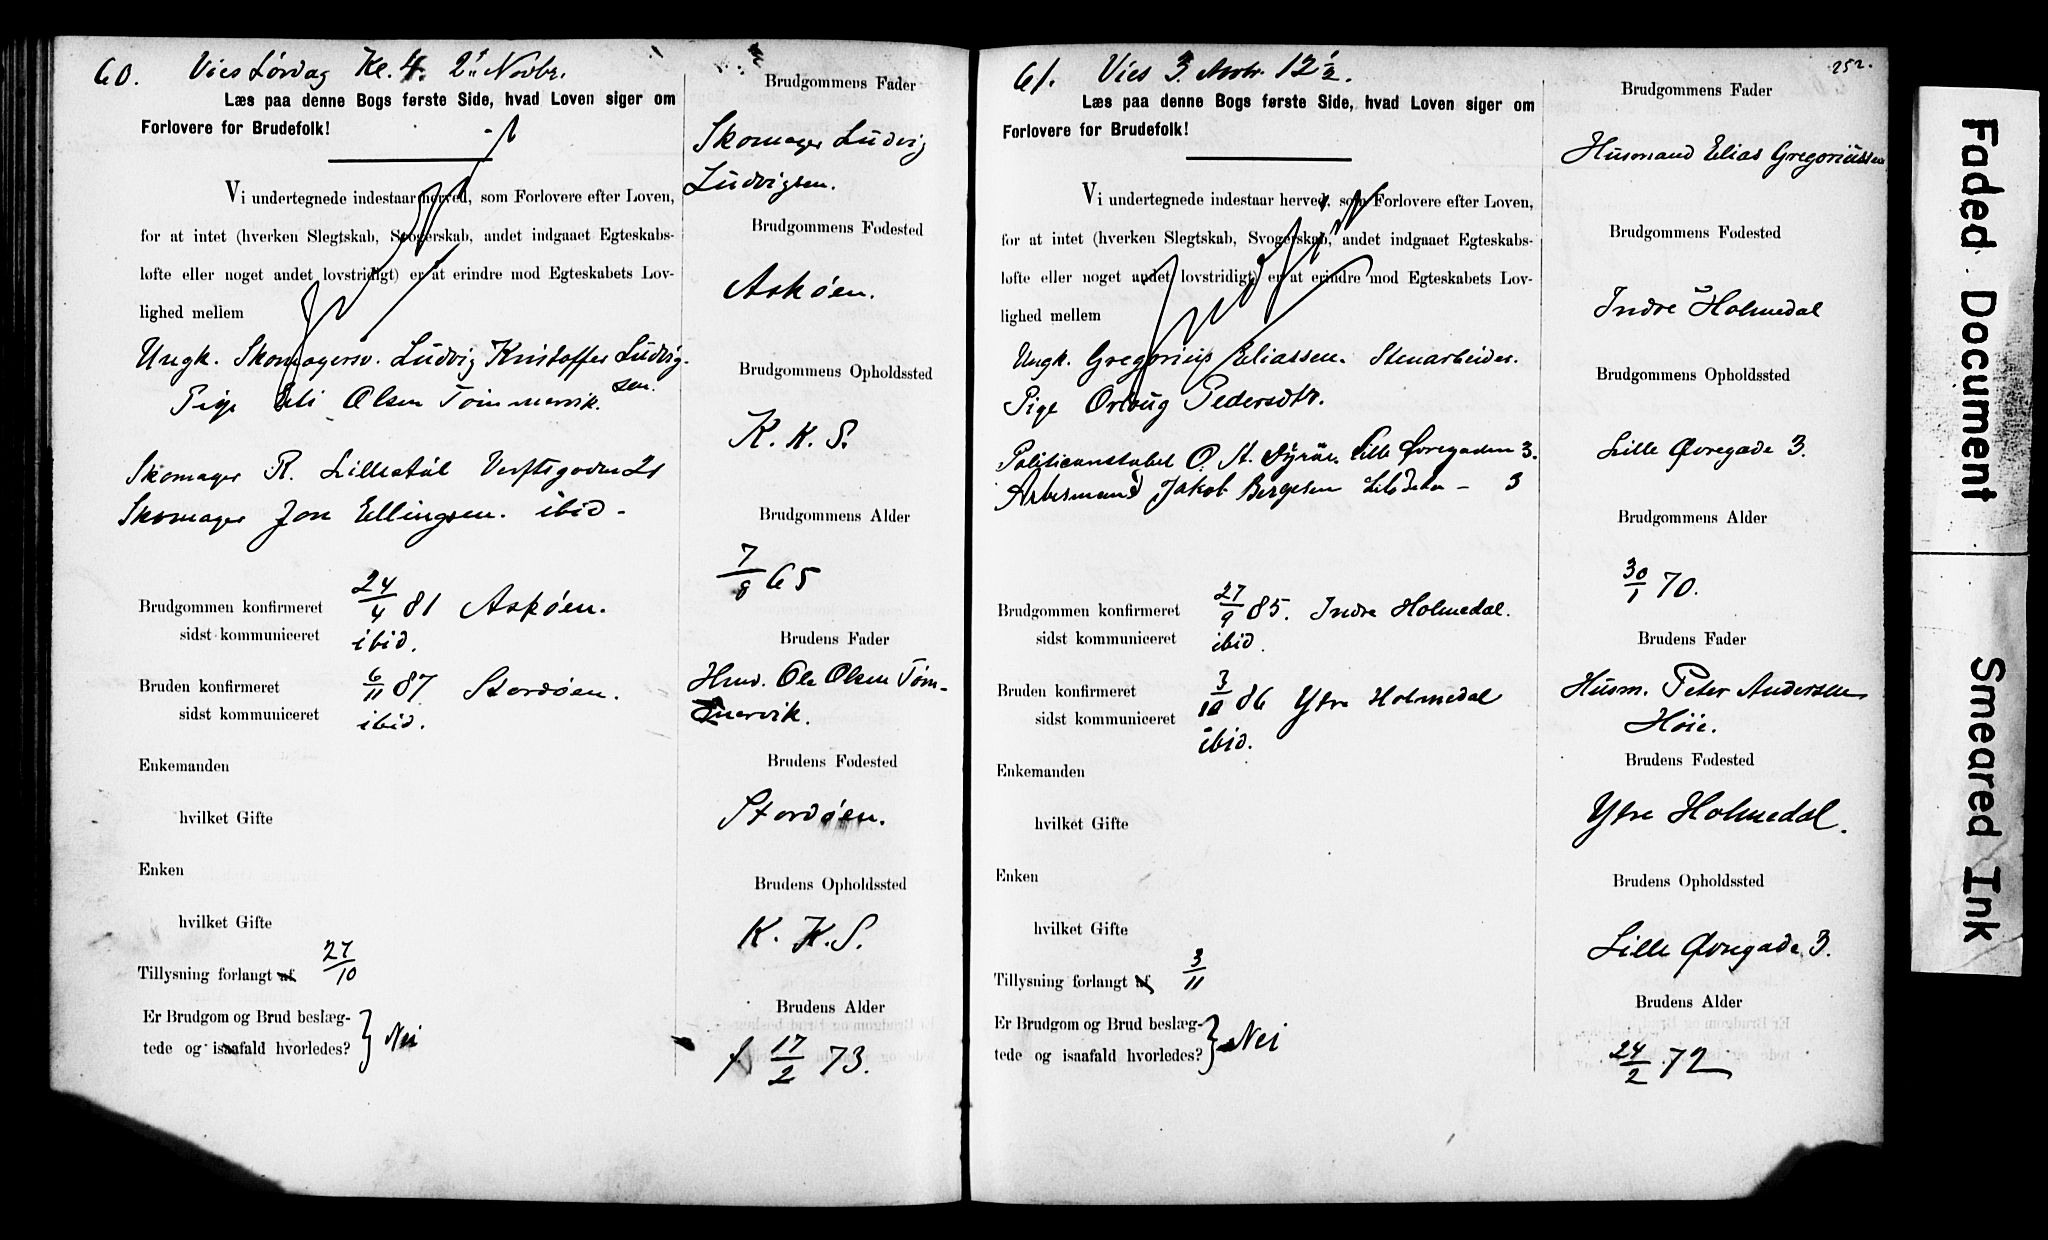 60. Vies Lørdag Kl. 4. 2' Novbr.
Læs paa denne Bogs første Side, hvad Loven siger om
Forlovere for Brudefolk!
Vi undertegnede indestaar herved, som Forlovere efter Loven,
for at intet (hverken Slegtskab, Svogerskab, andet indgaaet Egteskabs-
løfte eller noget andet lovstridigt) er at erindre mod Egteskabets Lov-
lighed mellem
Ungk. Skomagersv. Ludvig Kristoffer Ludvig-
sen.
Pige Eli Olsen Tømmervik.
Skomager R. Lillestøl Verftsgaden 21
Skomager Jon Ellingsen. ibid.
Brudgommen konfirmeret 24/4 81 Askøen.
sidst kommuniceret ibid.
Bruden konfirmeret 6/11 87 Stordøen.
sidst kommuniceret ibid.
Enkemanden
hvilket Gifte
Enken
hvilket Gifte
Tillysning forlangt af 27/10
Er Brudgom og Brud beslæg-
tede og isaafald hvorledes? } Nei
Brudgommens Fader
Skomager Ludvig
Ludvigsen.
Brudgommens Fødested
Askøen.
Brudgommens Opholdssted
K. K. S.
Brudgommens Alder
7/8 65
Brudens Fader
Hmd. Ole Olsen Tøm-
mervik.
Brudens Fødested
Stordøen.
Brudens Opholdssted
K. K. S.
Brudens Alder
f 17/2 73.
252.
61. Vies 3. Novbr. 12 1/2.
Læs paa denne Bogs første Side, hvad Loven siger om
Forlovere for Brudefolk!
Vi undertegnede indestaar herved, som Forlovere efter Loven,
for at intet (hverken Slegtskab, Svogerskab, andet indgaaet Egteskabs-
løfte eller noget andet lovstridigt) er at erindre mod Egteskabets Lov-
lighed mellem
Ungk. Gregorius Eliassen. Stenarbeider.
Pige Orlaug Pedersdtr.
Politiconstabel O. A. Lille Øvregaden 3.
Jakob Bergesen - 3
Brudgommen konfirmeret 27/9 85. Indre Holmedal.
sidst kommuniceret ibid.
Bruden konfirmeret 3/10 86 Ytre Holmedal
sidst kommuniceret ibid.
Enkemanden
hvilket Gifte
Enken
hvilket Gifte
Tillysning forlangt af 3/11
Er Brudgom og Brud beslæg-
tede og isaafald hvorledes? } Nei
Brudgommens Fader
Husmand Elias Gregoriussen
Brudgommens Fødested
Indre Holmedal
Brudgommens Opholdssted
Lille Øvregade 3.
Brudgommens Alder
30/1 70.
Brudens Fader
Husm. Peter Andersen
Høie.
Brudens Fødested
Ytre Holmedal.
Brudens Opholdssted
Lille Øvregade 3.
Brudens Alder
24/2 72
Faded Document
Smeared Ink